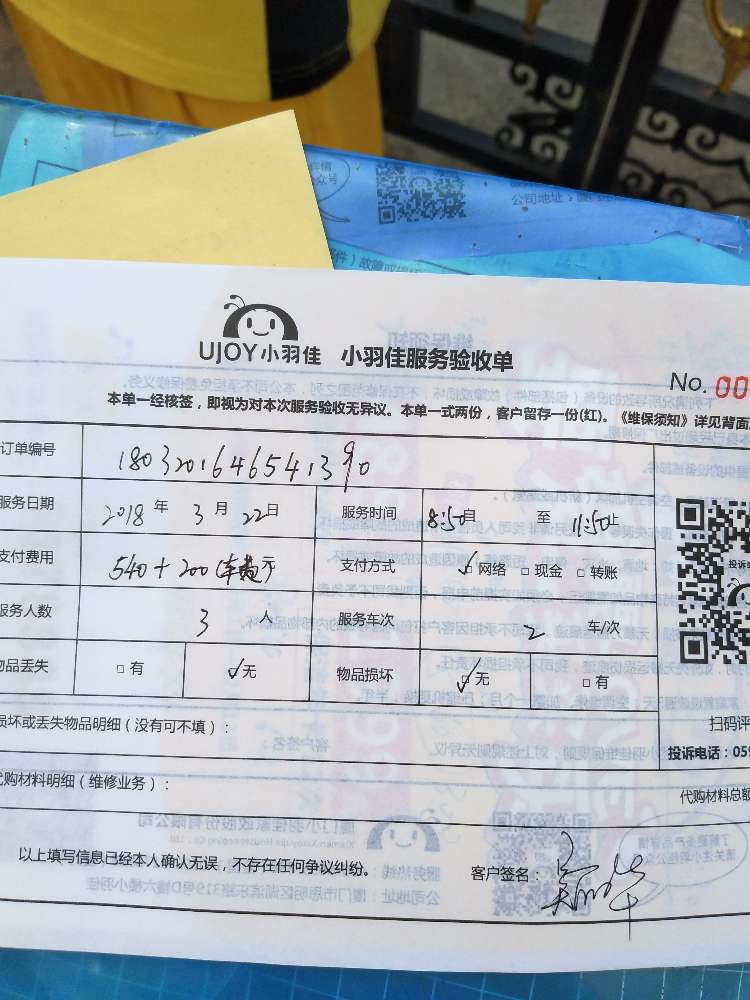 公司地址：厦
UJOY小羽佳 小羽佳服务验收单
No. 00
本单一经核签，即视为对本次服务验收无异议。本单一式两份，客户留存一份(红)。《维保须知》详见背面
订单编号 1803201646541390
服务日期 2018 年 3 月 22 日 服务时间 8:50 至 11:50
支付费用 540+200(车费) 支付方式 ☑网络 □现金 □转账
服务人数 3 人 服务车次 2 车/次
物品丢失 □有 ☑无 物品损坏 ☑无 □有
损坏或丢失物品明细（没有可不填）：
扫码评
投诉电话：059
代购材料明细（维修业务）：
代购材料总额
以上填写信息已经本人确认无误，不存在任何争议纠纷。
客户签名：